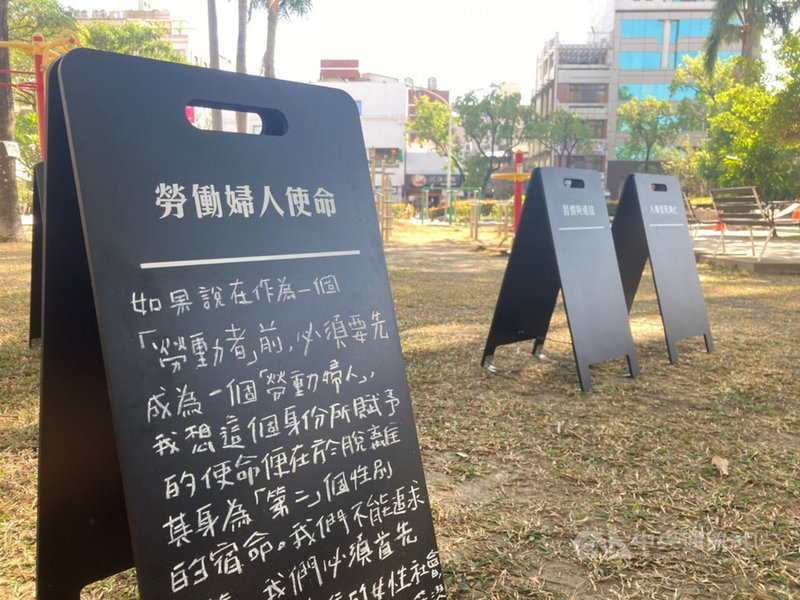 勞働婦人使命
如果說在作為一個
「勞動者」前，必須要先
成為一個「勞動婦人」，
我想這個身份所賦予
的使命便在於脫離
其身為「第二」個性別
的宿命。我們不能追求
我們必須首先
女性社會
習慣與通信
人無愛莫滅亡
中央通訊社